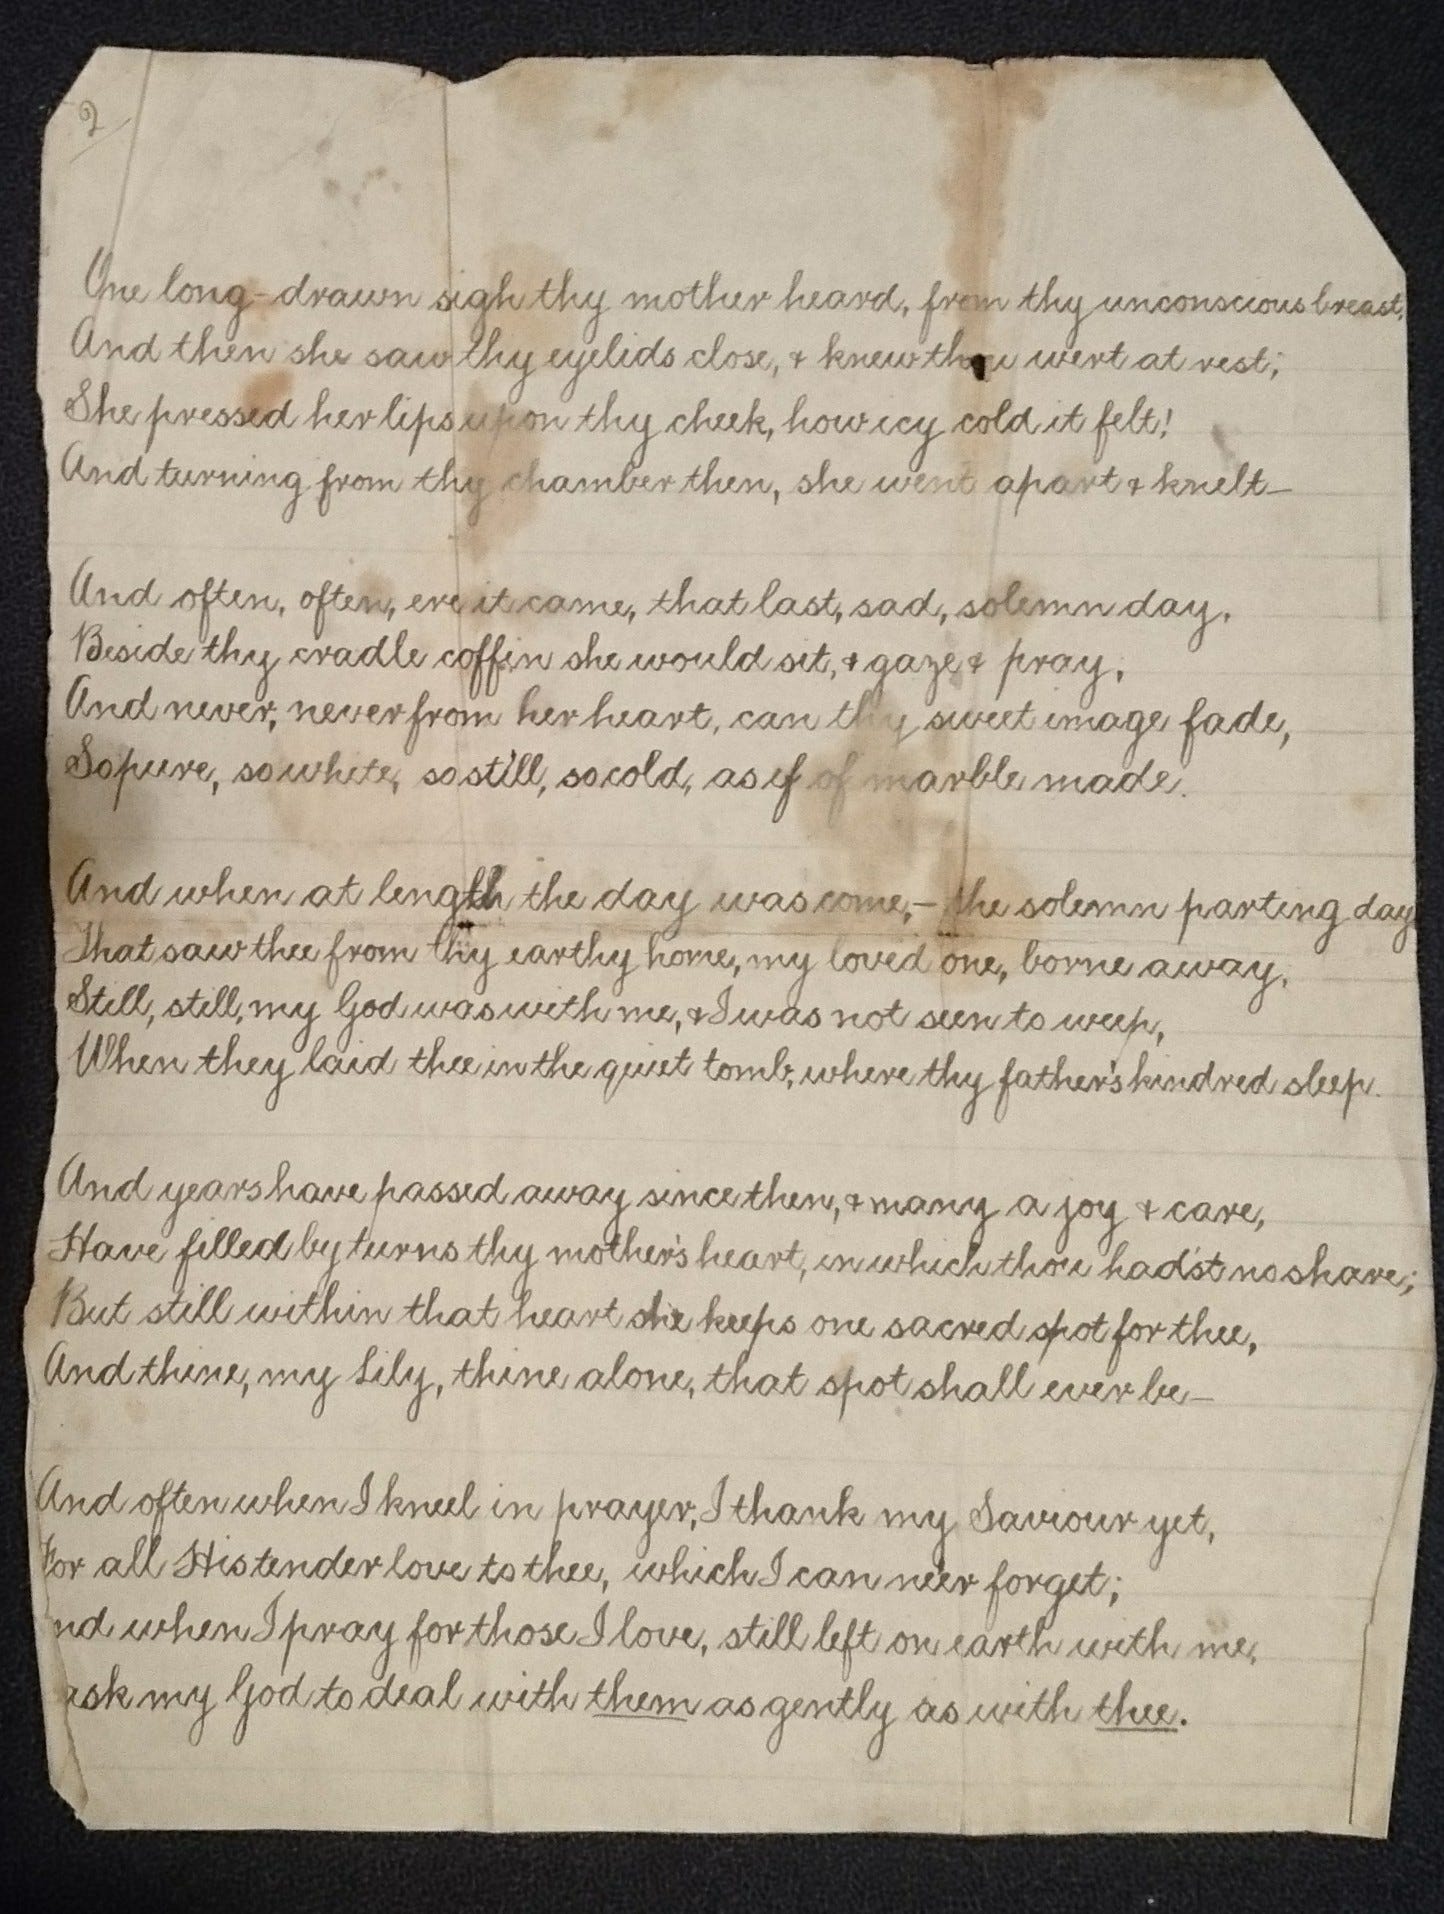 2
One long-drawn sigh thy mother heard, from thy unconscious breast,
And then she saw thy eyelids close, & knew thou wert at rest;
She pressed her lips upon thy cheek, how icy cold it felt!
And turning from thy chamber then, she went apart & knelt—
And often, often, ere it came, that last, sad, solemn day,
Beside thy cradle coffin she would sit, & gaze & pray,
And never, never from her heart, can thy sweet image fade,
So pure, so white, so still, so cold, as if of marble made.
And when at length the day was come,— the solemn parting day
That saw thee from thy earthy home, my loved one, borne away,
Still, still, my God was with me, & I was not seen to weep,
When they laid thee in the quiet tomb, where thy father's kindred sleep.
And years have passed away since then, & many a joy & care,
Have filled by turns thy mother's heart, in which thou had'st no share;
But still within that heart she keeps one sacred spot for thee,
And thine, my Lily, thine alone, that spot shall ever be—
And often when I kneel in prayer, I thank my Saviour yet,
For all His tender love to thee, which I can ne'er forget;
nd when I pray for those I love, still left on earth with me,
ask my God to deal with them as gently as with thee.